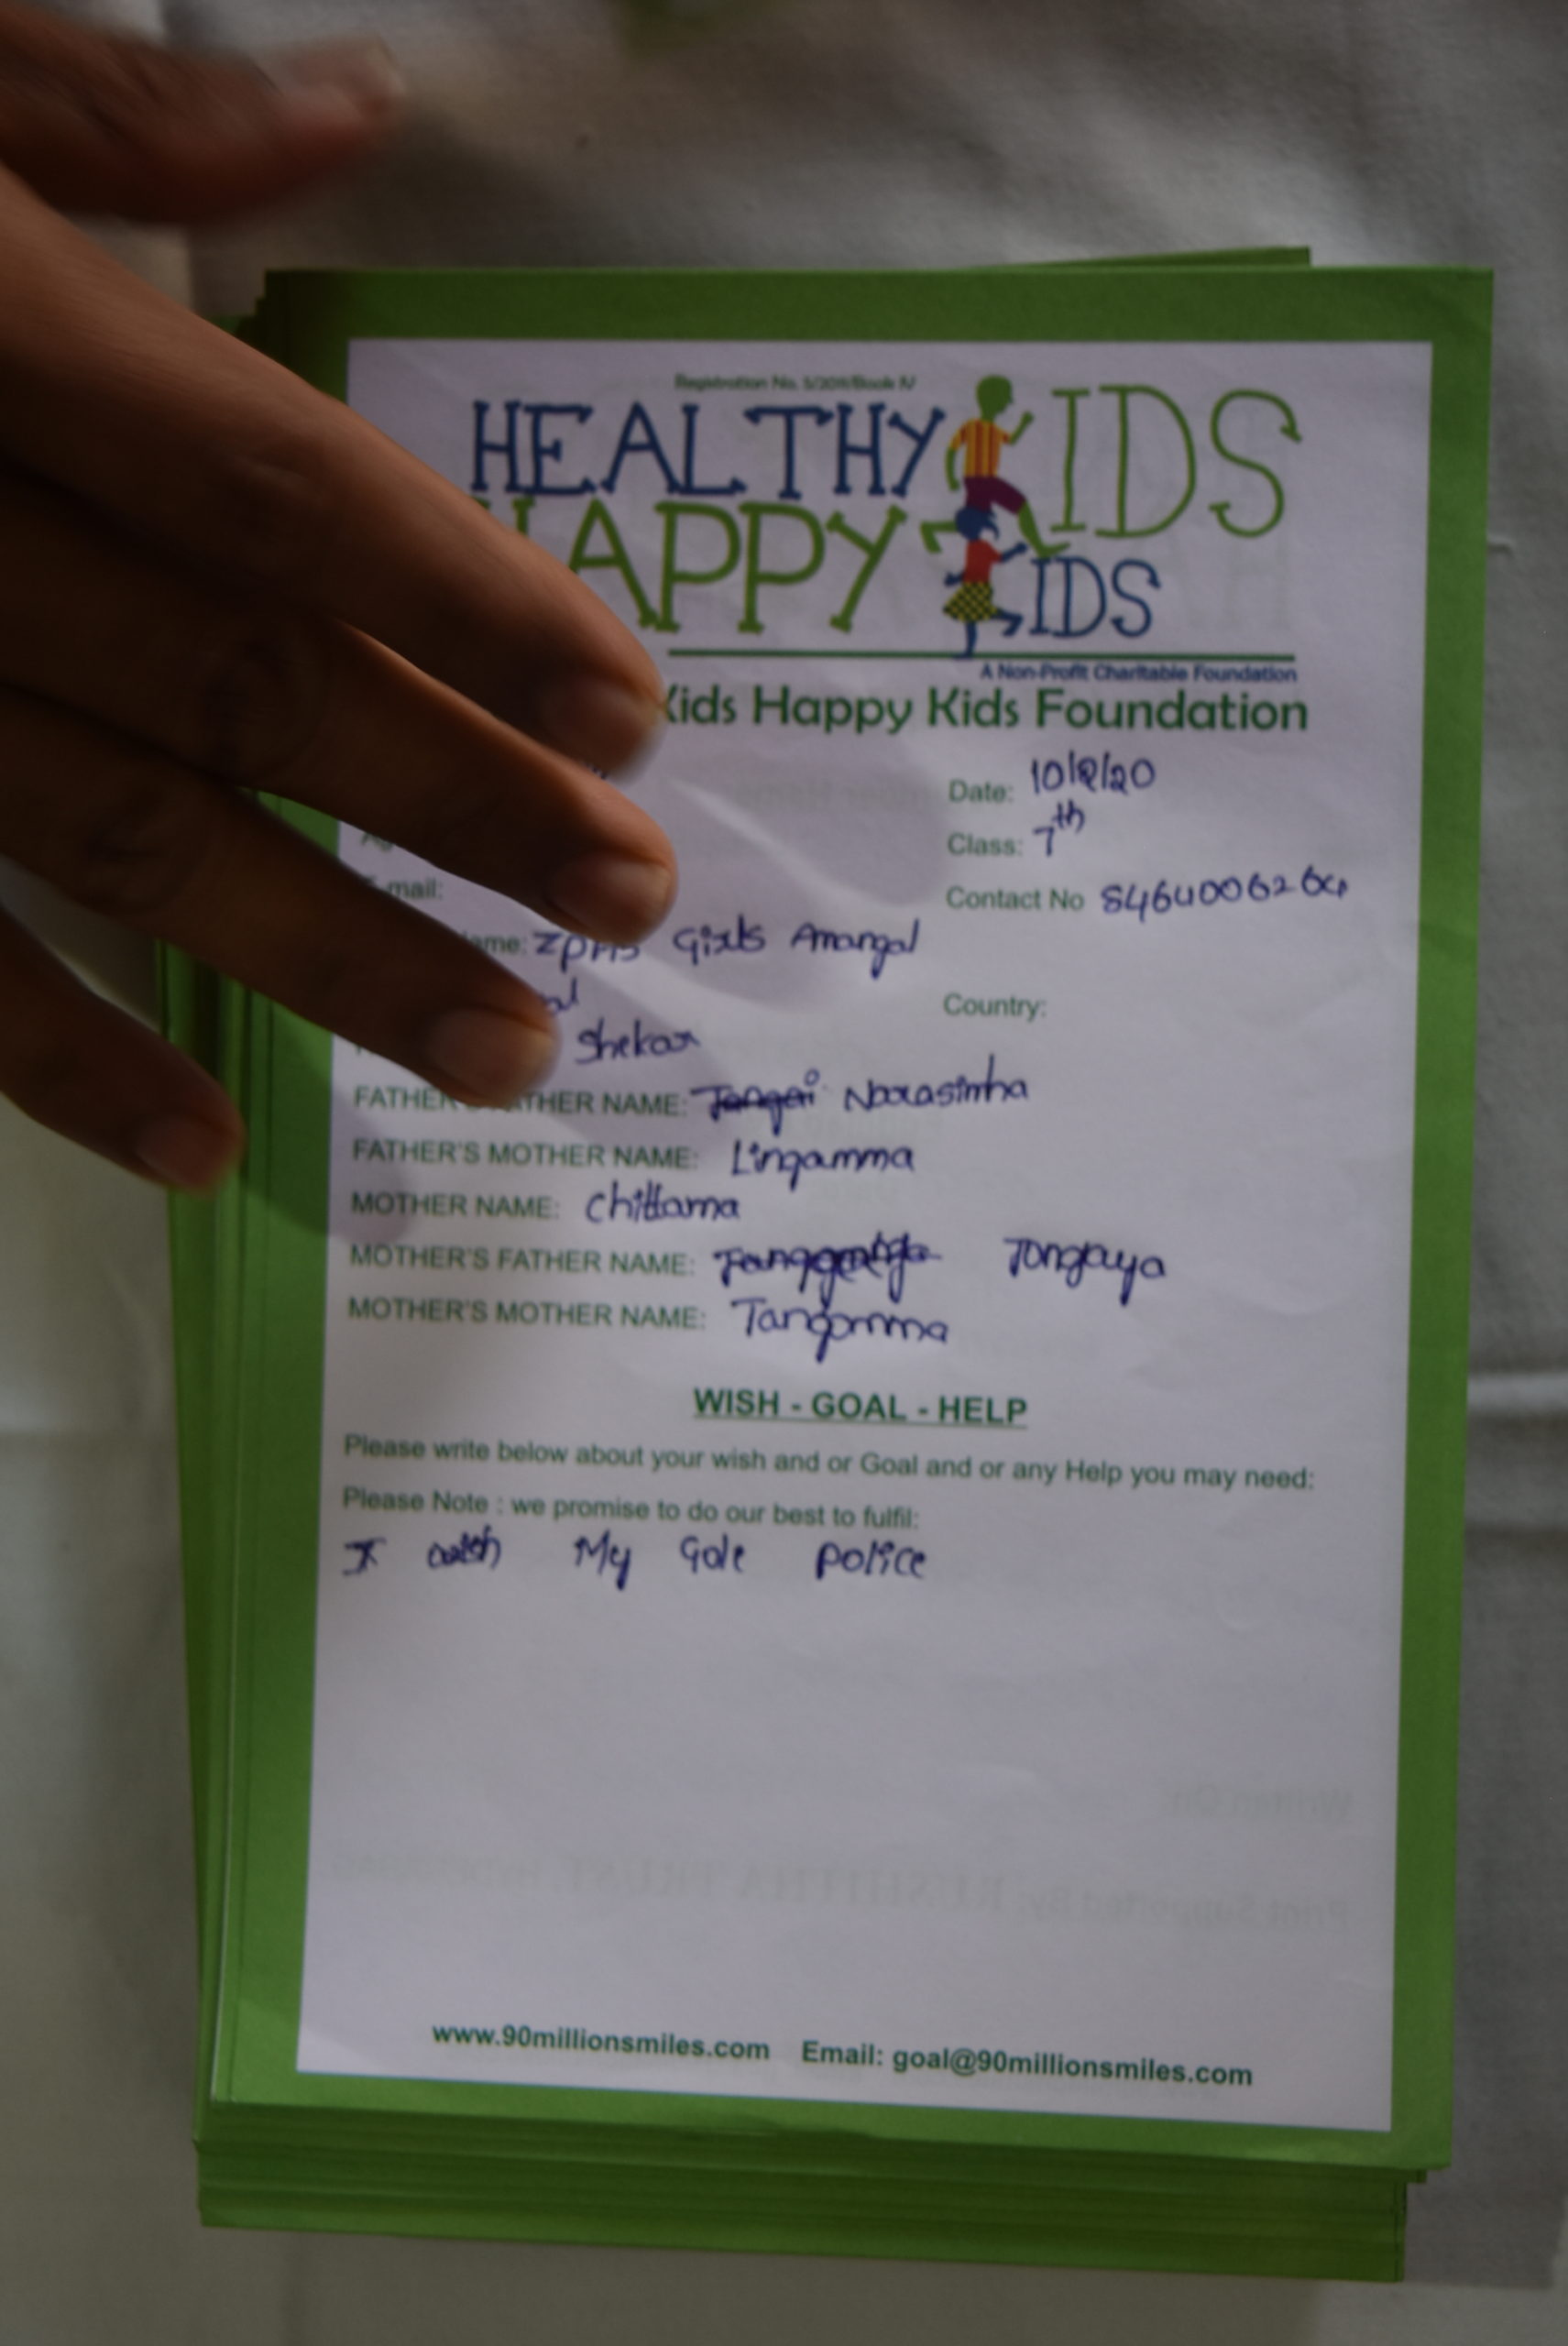 Registration No. 5/2011/Book IV
HEALTHY KIDS
HAPPY KIDS
A Non-Profit Charitable Foundation
Kids Happy Kids Foundation
Date: 10/2/20
Class: 7th
E-mail:
Contact No 8464006264
Name: ZPHS Girls Amangal
Country:
Shekar
FATHER'S FATHER NAME: Narasimha
FATHER'S MOTHER NAME: Lingamma
MOTHER NAME: Chittama
MOTHER'S FATHER NAME: Tongaya
MOTHER'S MOTHER NAME: Tangomma
WISH - GOAL - HELP
Please write below about your wish and or Goal and or any Help you may need:
Please Note : we promise to do our best to fulfil:
I wish My Gole police
www.90millionsmiles.com Email: goal@90millionsmiles.com